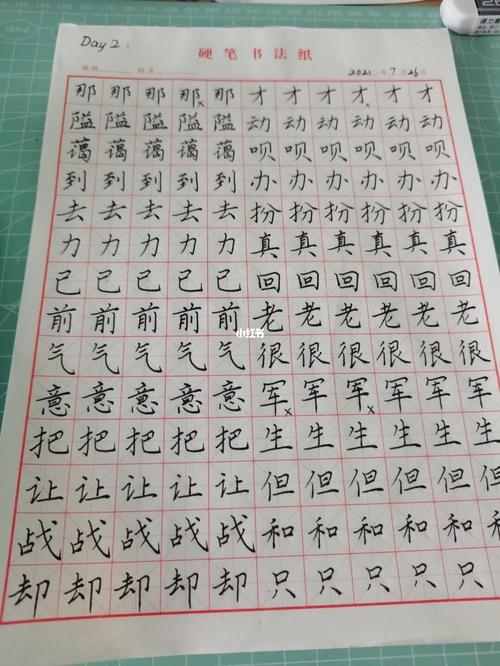 Day 2:
硬笔书法纸
班级 姓名 2021年7月26日
那那那那那才才才才才才
隘隘隘隘隘动动动动动动
蔼蔼蔼蔼蔼呗呗呗呗呗呗
到到到到到办办办办办办
去去去去去扮扮扮扮扮扮
力力力力力真真真真真真
已已已已已回回回回回回
前前前前前老老老老老老
气气气气气很很很很很很
小红书
意意意意意军军军军军军
把把把把把生生生生生生
让让让让让但但但但但但
战战战战战和和和和和和
却却却却却只只只只只只
得力